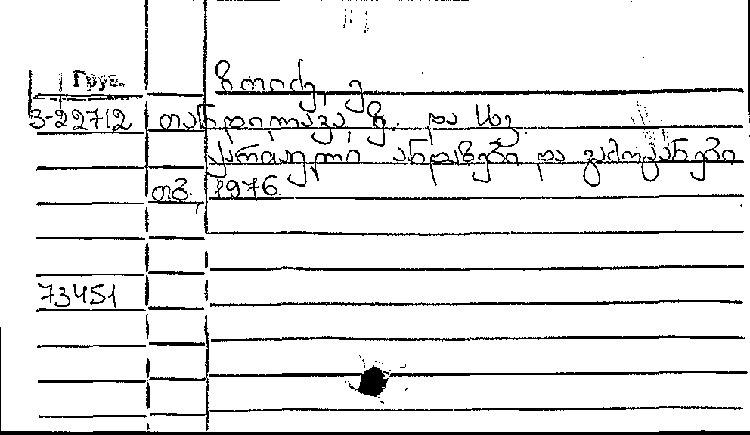 Груз.
3-22712 თანდილავა, ზ. და სხვ.
ქართული ანდაზები და გამოცანები
თბ., 1976
73451